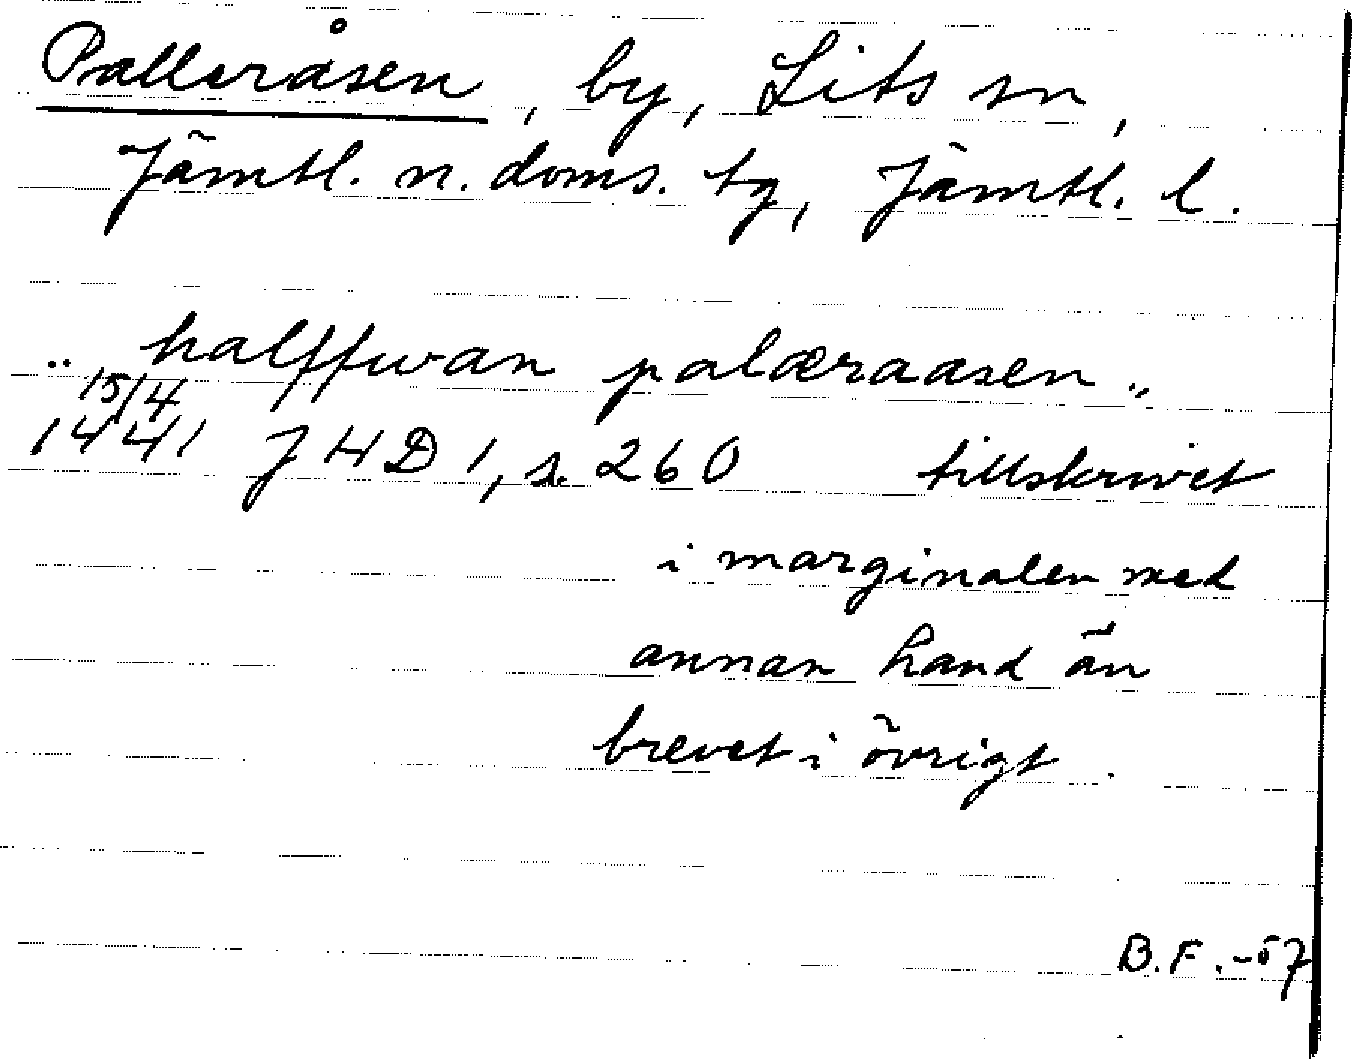 Palleråsen, by, Lits sn,
Jämtl. n. doms. tg, Jämtl. l.
.. halffwan palæraasen ..
15/4
1441 JHD 1, s. 260 tillskrivet
i marginalen med
annan hand än
brevet i övrigt.
B.F. -57